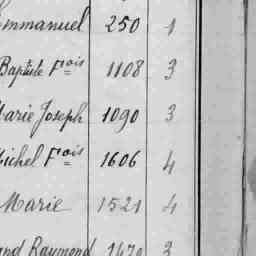 Emmanuel 250 1
Baptiste Fois 1108 3
Marie Joseph 1090 3
Michel Fois 1606 4
Marie 1521 4
Raymond 1470 3